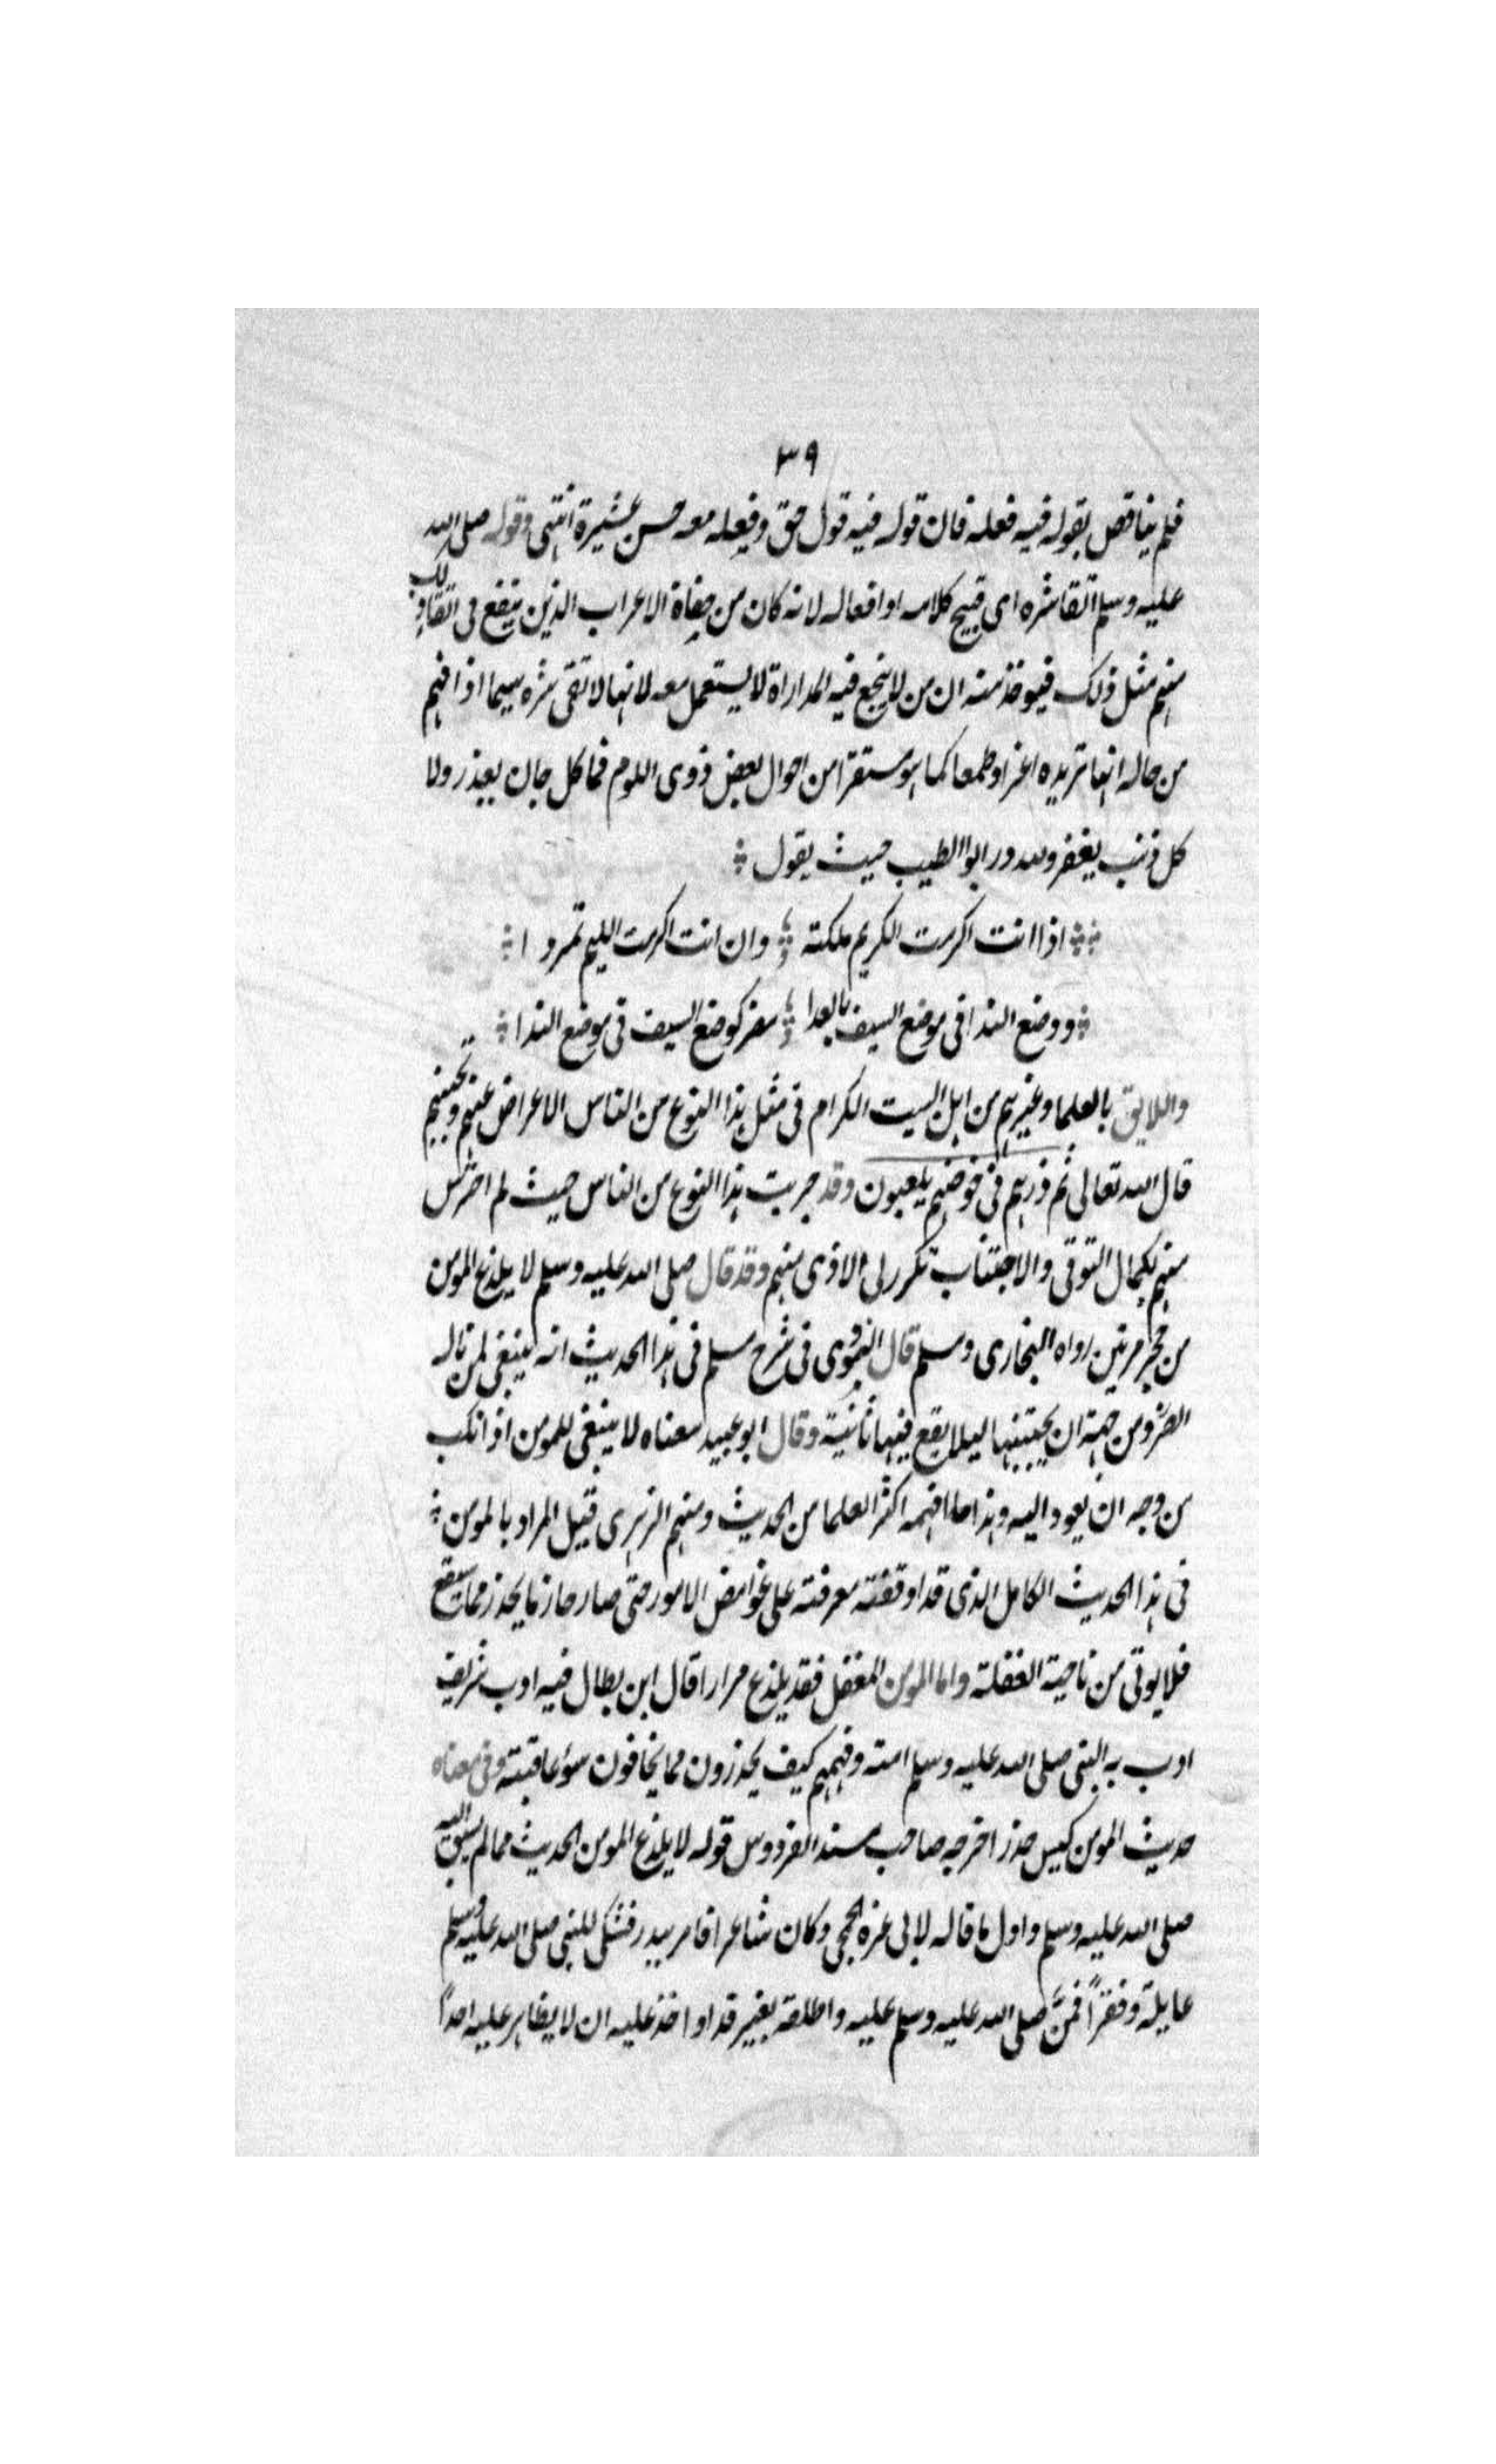 ٣٩
فلم يناقض بقوله فيه فعله فان قوله فيه قول حق وفعله معه حسن عشيرة انتهى وقوله صلى الله
عليه وسلم اتقا شره اى قبيح كلامه او افعاله لانه كان من جفاة الاعراب الذين ينفع فى اتقاء
منهم مثل ذلك فيوخذ منه ان من لا ينجع فيه المداراة لا يستعمل معه لانها لا تقى شره سيما اذا فهم
من حاله انها تزيده اغراوطمعا كما هو مستقرا من احوال بعض ذوى اللوم فما كل جان يعذر ولا
كل ذنب يغفر ولله در ابو الطيب حيث يقول
اذا انت اكرمت الكريم ملكته وان انت اكرمت الليم تمردا
ووضع الندا فى موضع السيف بالعدا مضر كوضع السيف فى موضع الندا
واللايق بالعلما وغيرهم من اهل البيت الكرام فى مثل هذا النوع من الناس الاعراض عنهم وتجنبهم
قال الله تعالى ثم ذرهم فى خوضهم يلعبون وقد جربت هذا النوع من الناس حيث لم احترس
منهم بكمال التوقى والاجتناب تكرر لى الاذى منهم وقد قال صلى الله عليه وسلم لا يلدغ المومن
من جحر مرتين رواه البخارى ومسلم قال النووى فى شرح مسلم فى هذا الحديث انه ينبغى لمن ناله
الضرر من جهة ان يجتنبها ليلا يقع فيها ثانية وقال ابو عبيد معناه لا ينبغى للمومن اذا نكب
من وجه ان يعود اليه وهذا ما افهمه اكثر العلما من الحديث ومنهم الزهرى قيل المراد بالمومن
فى هذا الحديث الكامل الذى قد اوقفته معرفته على غوامض الامور حتى صار حازما يحذر مما سيقع
فلا يوتى من ناحية الغفلة واما المومن المغفل فقد يلدغ مرارا قال ابن بطال فيه ادب شريف
ادب به النبى صلى الله عليه وسلم امته وفهمهم كيف يحذرون مما يخافون سوء عاقبته وفى معناه
حديث المومن كيس حذر اخرجه صاحب مسند الفردوس قوله لا يلدغ المومن الحديث مما لم يسبق اليه
صلى الله عليه وسلم واول ما قاله لابى عزة الجمحى وكان شاعرا فاسر ببدر فشكى للنبى صلى الله عليه وسلم
عايلة وفقرًا فمنَّ صلى الله عليه وسلم عليه واطلقه بغير فدا واخذ عليه ان لا يظاهر عليه احدًا